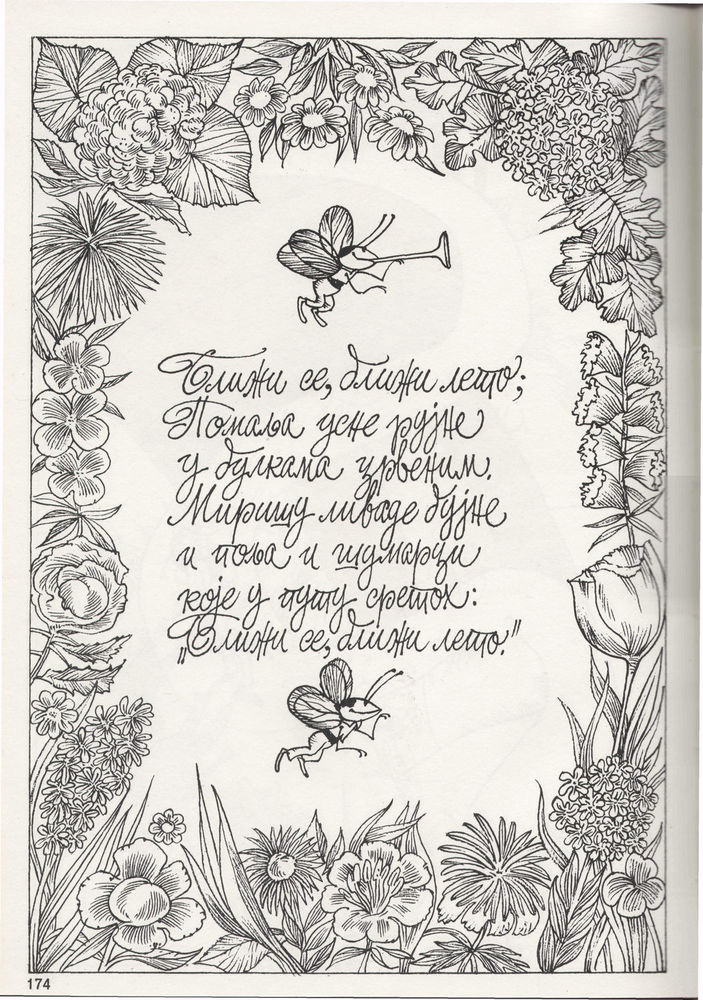 Ближи се, ближи лето;
Помаља усне рујне
у булкама црвеним.
Миришу ливаде бујне
и поља и шумарци
које у путу сретох:
„Ближи се, ближи лето."
174